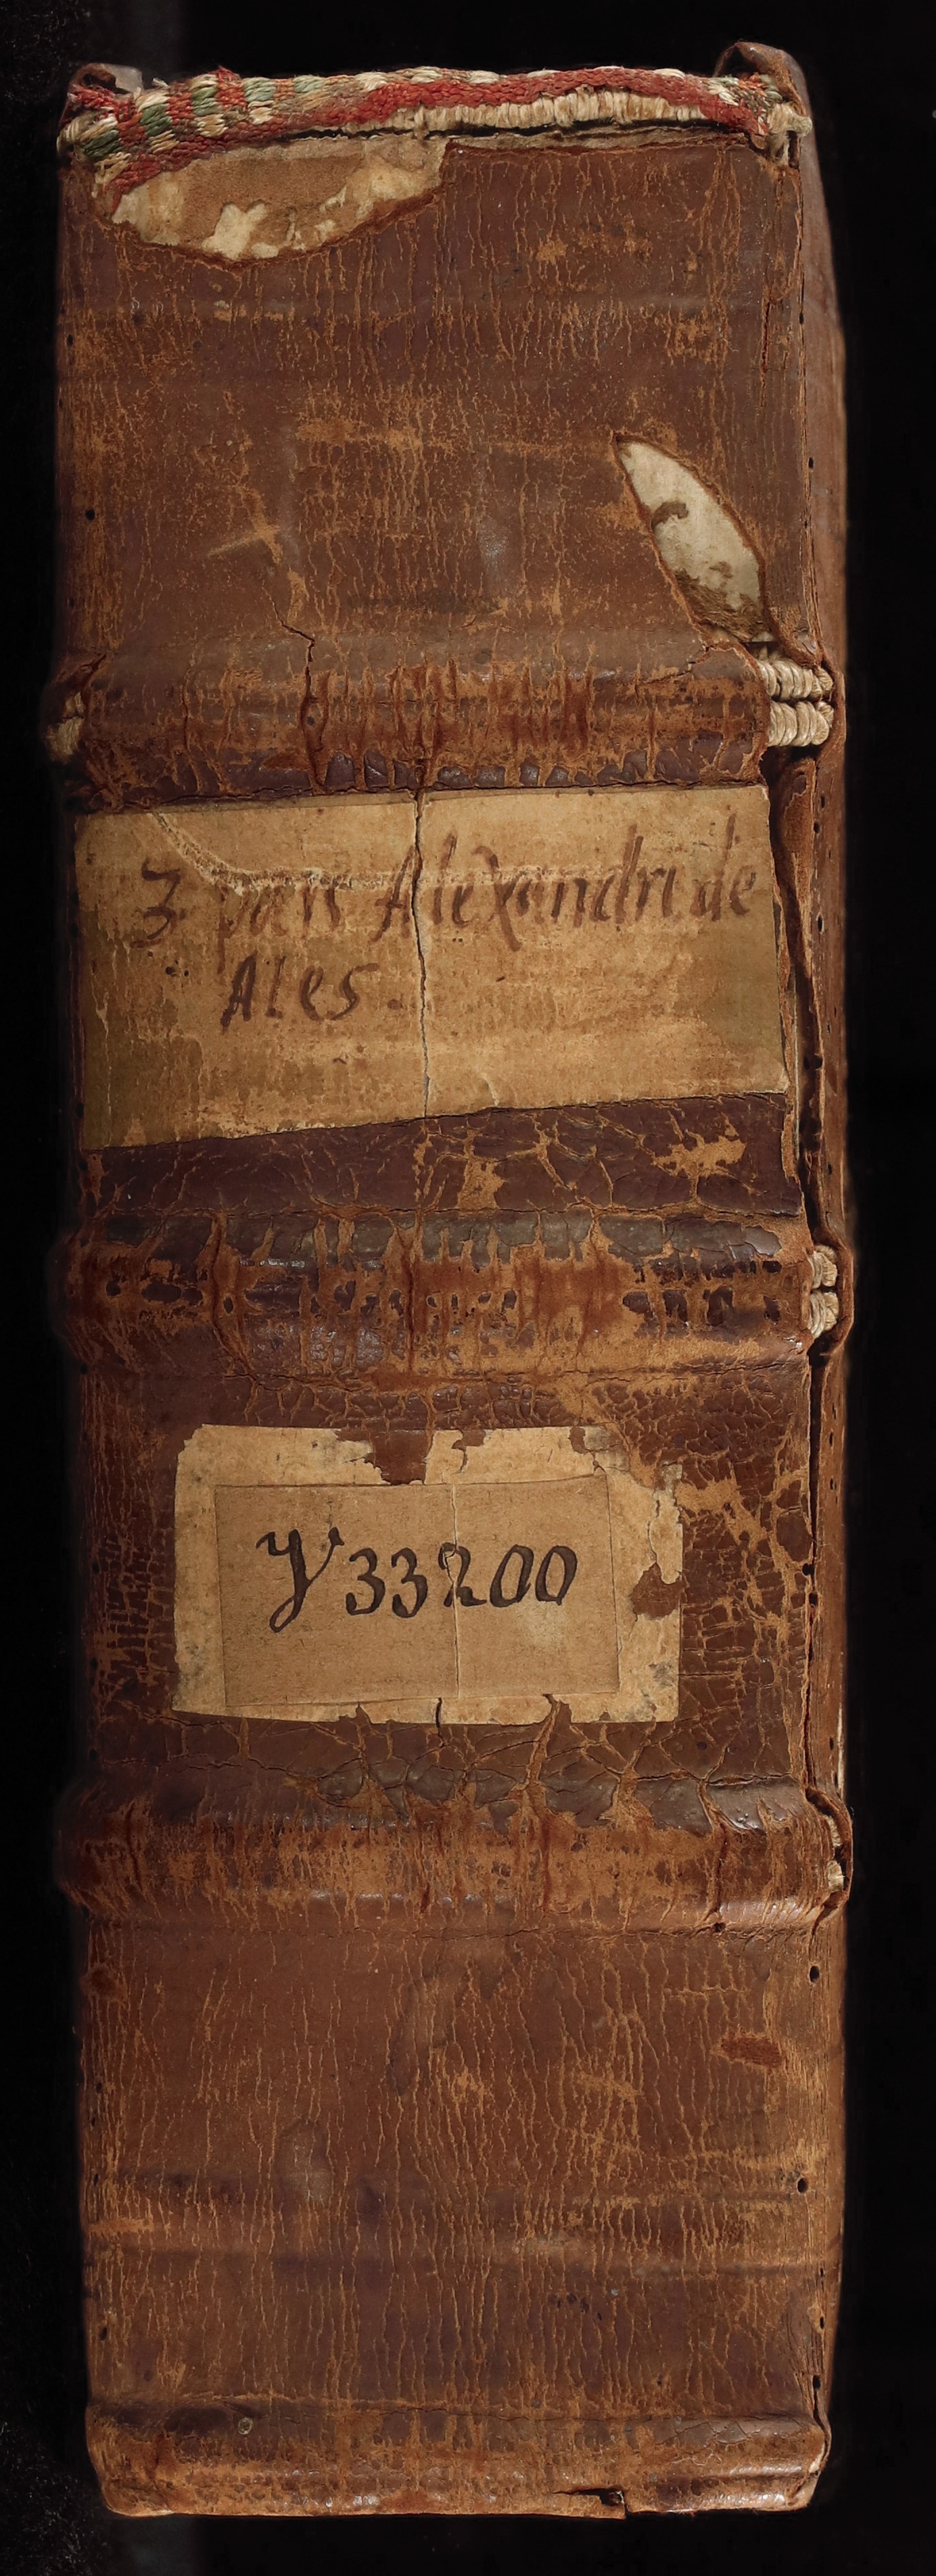 3 pars Alexandri de
Ales.
Y 33200